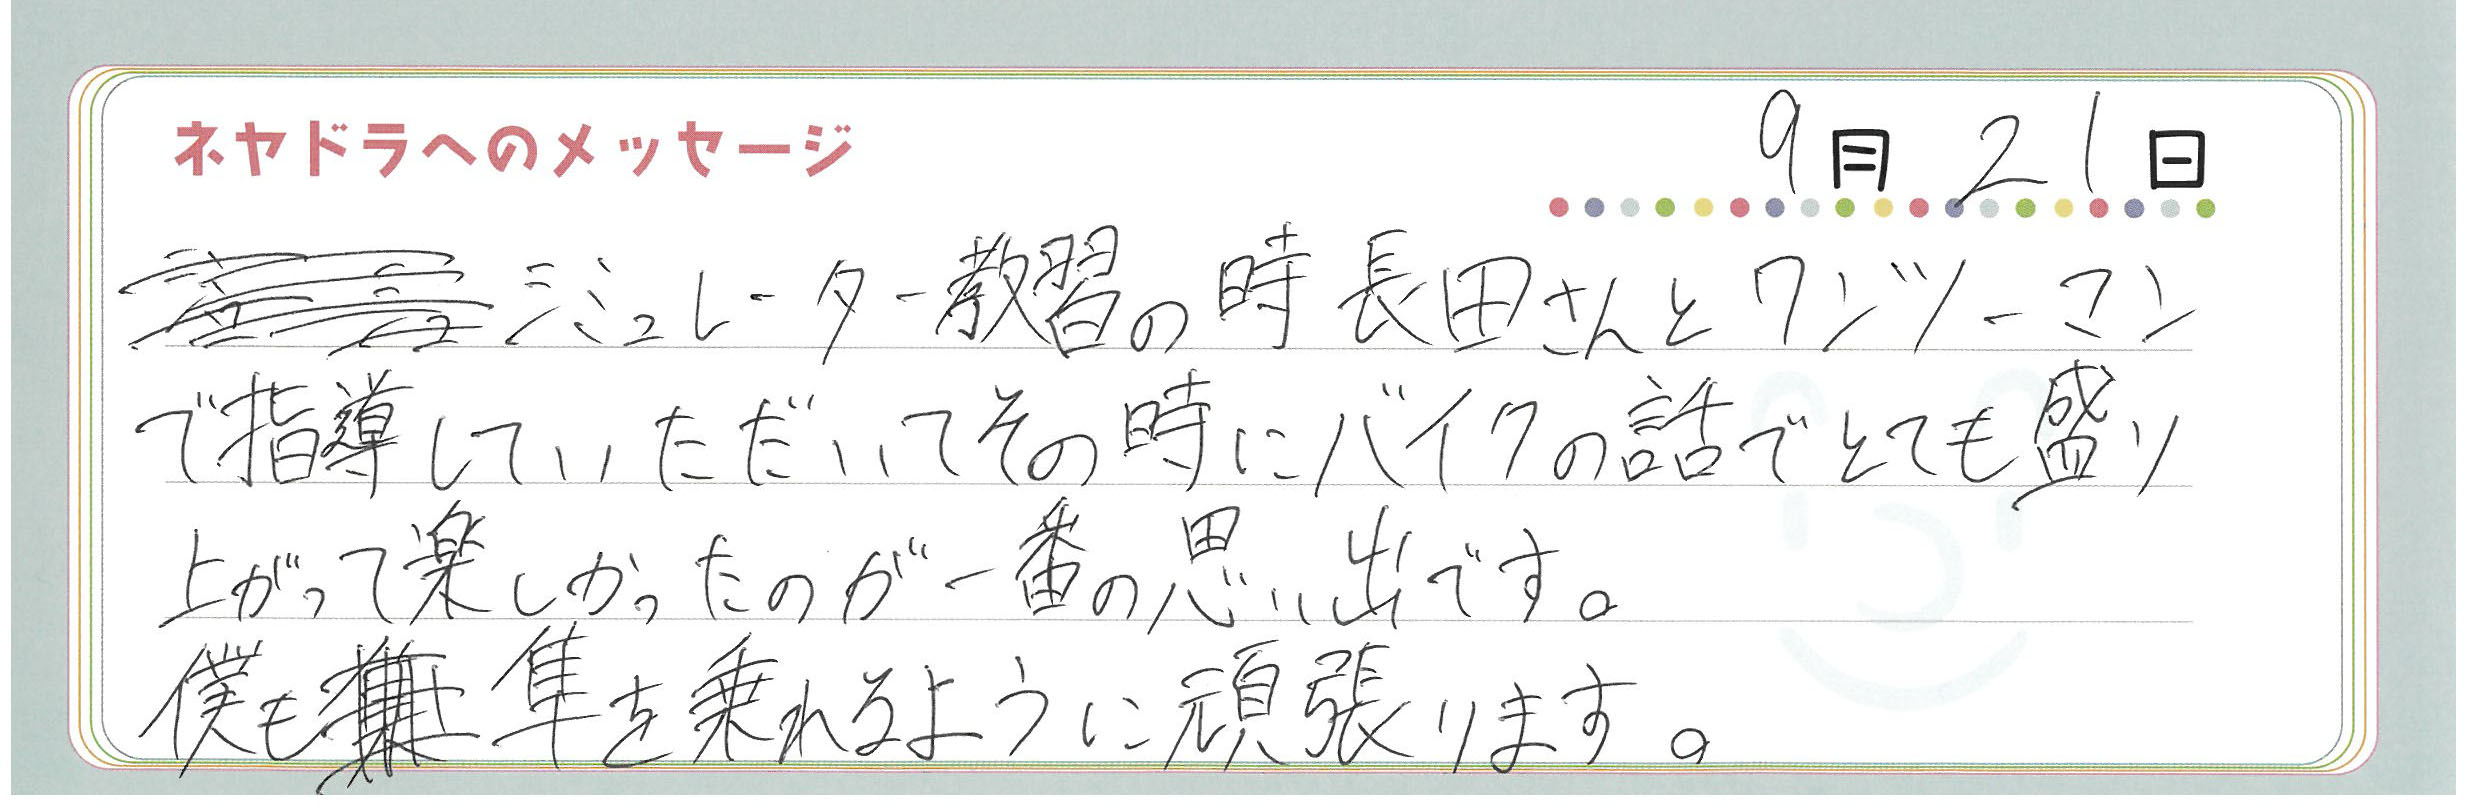 ネヤドラへのメッセージ
9月21日
ジュレーター教習の時長田さんとワンツーマン
で指導していただいてその時にバイクの話でとても盛り
上がって楽しかったのが一番の思い出です。
僕も隼を乗れるように頑張ります。